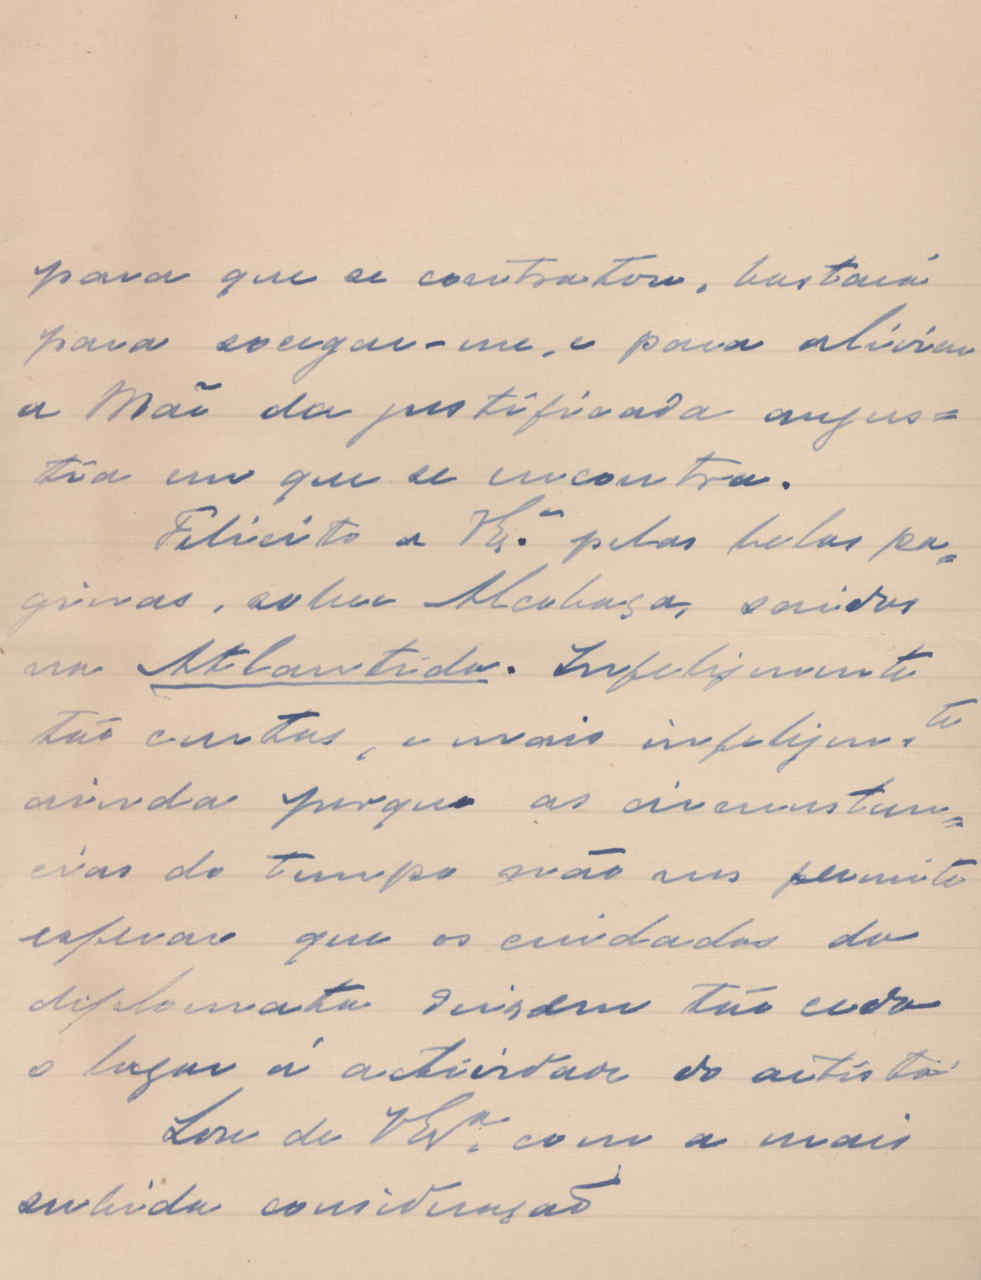 para que se contratou, bastará
para socegar-me, e para aliviar
a Mãe da justificada angus=
tia em que se encontra.
Felicito a VEx.ª pelas belas pa=
ginas, sobre Alcobaça, saidas
na Atlantida. Infelizmente
tão curtas, e mais infelizmente
ainda porque as circumstan=
cias do tempo não nos permite
esperar que os cuidados do
diplomata deixem tão cedo
o lugar á actividade do artista
Sou de VEx.ª com a mais
subida consideração